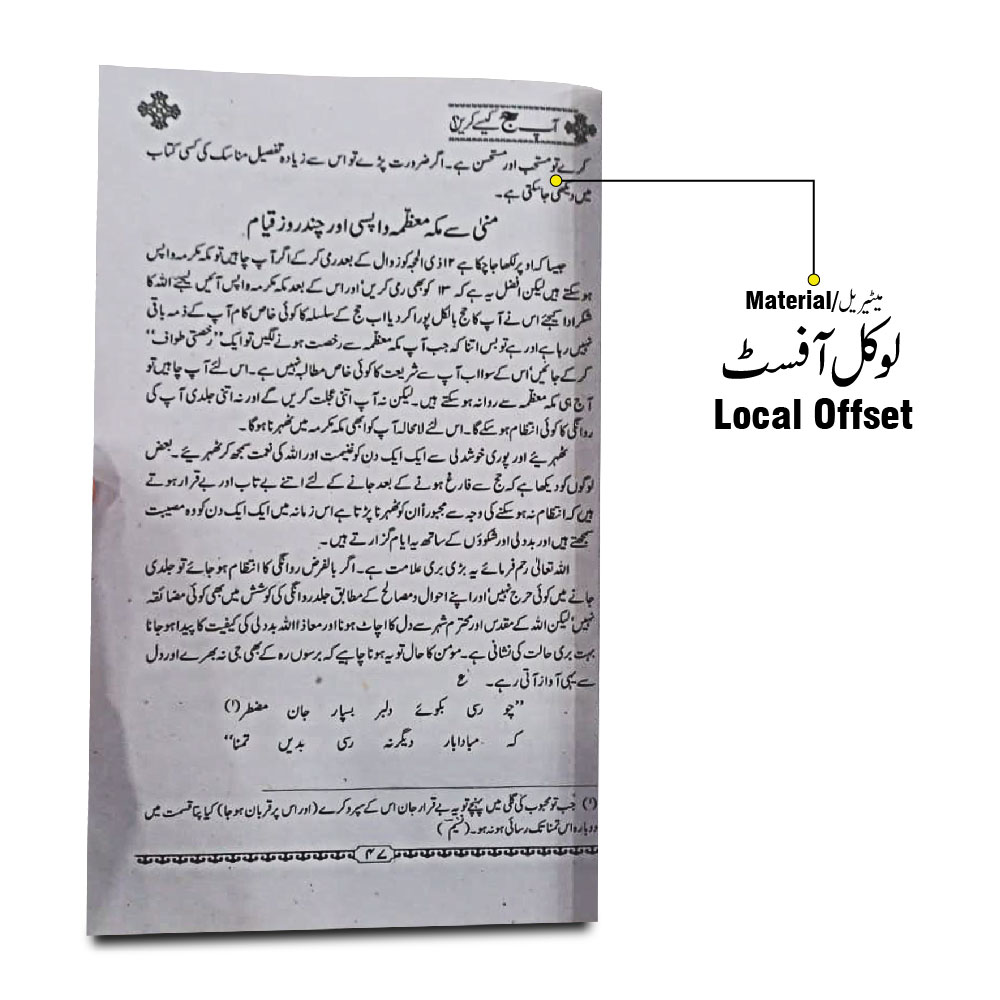 آپ حج کیسے کریں
کرے تو مستحب اور مستحسن ہے۔ اگر ضرورت پڑے تو اس سے زیادہ تفصیل مناسک کی کسی کتاب
میں دیکھی جاسکتی ہے۔
منیٰ سے مکہ معظّمہ واپسی اور چند روز قیام
جیسا کہ اوپر لکھا جاچکا ہے ۱۲ ذی الحجہ کو زوال کے بعد رمی کر کے اگر آپ چاہیں تو مکہ مکرمہ واپس
ہوسکتے ہیں لیکن افضل یہ ہے کہ ۱۳ کو بھی رمی کریں اور اس کے بعد مکہ مکرمہ واپس آئیں لیجئے اللہ کا
شکر ادا کیجئے اس نے آپ کا حج بالکل پورا کر دیا اب حج کے سلسلہ کا کوئی خاص کام آپ کے ذمہ باقی
نہیں رہا ہے اور ہے تو بس اتنا کہ جب آپ مکہ معظمہ سے رخصت ہونے لگیں تو ایک ’’رخصتی طواف‘‘
کر کے جائیں‘ اس کے سوا اب آپ سے شریعت کا کوئی خاص مطالبہ نہیں ہے۔ اس لئے آپ چاہیں تو
آج ہی مکہ معظّمہ سے روانہ ہوسکتے ہیں۔ لیکن نہ آپ اتنی عجلت کریں گے اور نہ اتنی جلدی آپ کی
روانگی کا کوئی انتظام ہوسکے گا۔ اس لئے لامحالہ آپ کو ابھی مکہ مکرمہ میں ٹھہرنا ہوگا۔
ٹھہریئے اور پوری خوشدلی سے ایک ایک دن کو غنیمت اور اللہ کی نعمت سمجھ کر ٹھہریئے۔ بعض
لوگوں کو دیکھا ہے کہ حج سے فارغ ہونے کے بعد جانے کے لئے اتنے بے تاب اور بے قرار ہوتے
ہیں کہ انتظام نہ ہوسکنے کی وجہ سے مجبوراً ان کو ٹھہرنا پڑتا ہے اس زمانہ میں ایک ایک دن کو وہ مصیبت
سمجھتے ہیں اور بددلی اور شکوؤں کے ساتھ یہ ایام گزارتے ہیں۔
اللہ تعالیٰ رحم فرمائے یہ بڑی بری علامت ہے۔ اگر بالفرض روانگی کا انتظام ہوجائے تو جلدی
جانے میں کوئی حرج نہیں‘ اور اپنے احوال و مصالح کے مطابق جلد روانگی کی کوشش میں بھی کوئی مضائقہ
نہیں‘ لیکن اللہ کے مقدس اور محترم شہر سے دل کا اچاٹ ہونا اور معاذ اللہ بددلی کی کیفیت کا پیدا ہوجانا
بہت بری حالت کی نشانی ہے۔ مؤمن کا حال تو یہ ہونا چاہیے کہ برسوں رہ کے بھی جی نہ بھرے اور دل
سے یہی آواز آتی رہے۔ ع
’’چو رسی بکوئے دلبر بسپار جان مضطر(۱)
کہ مبادا بار دیگر نہ رسی بدیں تمنا‘‘
(۱) جب تو محبوب کی گلی میں پہنچے تو یہ بے قرار جان اس کے سپرد کرے (اور اس پر قربان ہوجا) کیا پتا قسمت میں
دوبارہ اس تمنا تک رسائی ہو نہ ہو۔ (نسیم)
۴۷
Material/میٹیریل
لوکل آفسٹ
Local Offset